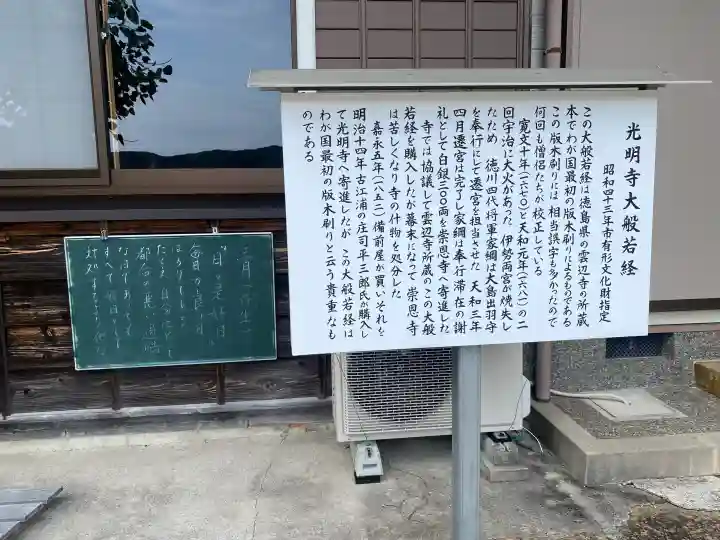 光明寺大般若経
昭和四十三年市有形文化財指定
この大般若経は徳島県の雲辺寺の所蔵
本でわが国最初の版木刷りによるものである
この版木刷りには 相当誤字も多かったので
何回も僧侶たちが校正している
寛文十年(一六七〇)と天和元年(一六八一)の二
回宇治に大火があった 伊勢両宮が焼失し
たため 徳川四代将軍家綱は大島出羽守
を奉行にして遷宮を担当させた 天和三年
四月遷宮は完了し家綱は奉行滞在の謝
礼として白銀三〇〇両を崇恩寺へ寄進した
寺では協議して雲辺寺所蔵のこの大般
若経を購入したが幕末になって 崇恩寺
は苦しくなり寺の什物を処分した
嘉永五年(一八五二)備前屋が買いそれを
明治十四年古江浦の庄司平三郎氏が購入し
て光明寺へ寄進したが この大般若経は
わが国最初の版木刷りと云う貴重なも
のである
日々是好日
毎日が良い日